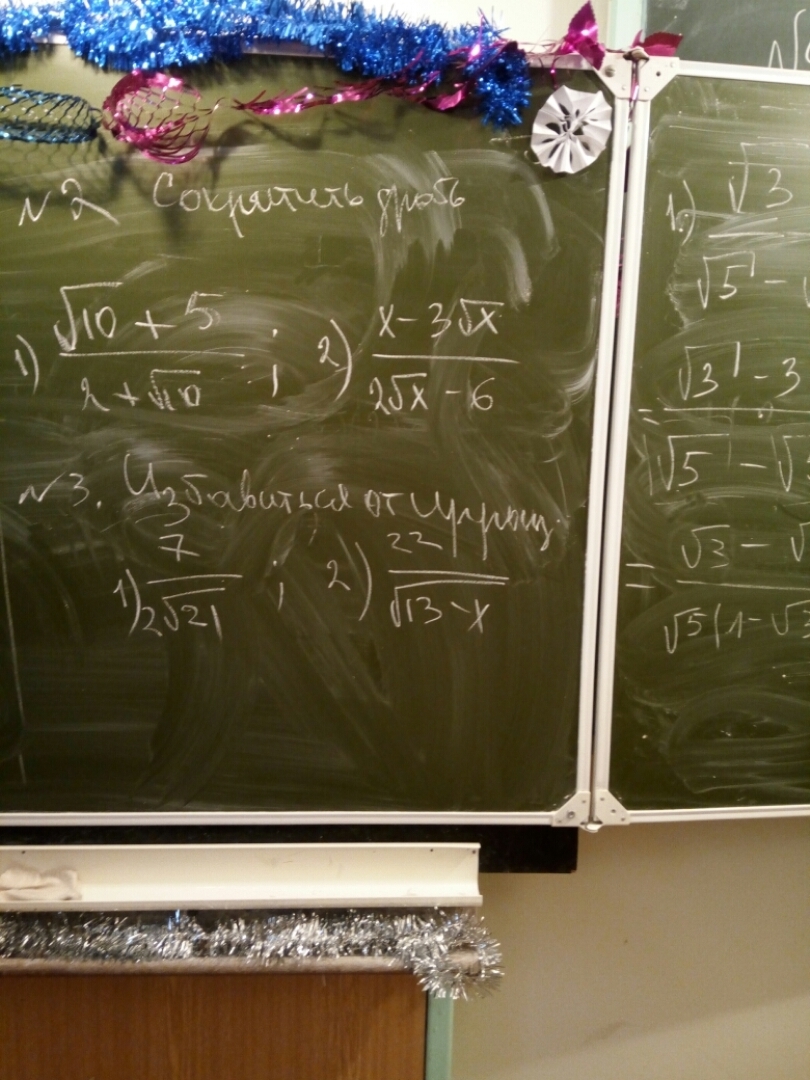 №2 Сократить дробь
1) (√10 + 5)/(2 + √10) ; 2) (x - 3√x)/(2√x - 6)
№3. Избавиться от Иррац.
1) 7/(2√21) ; 2) 22/(√13 - x)
1) √3
√5 -
= √3 - 3
√5 - √5
= √3 - √
√5(1 - √3